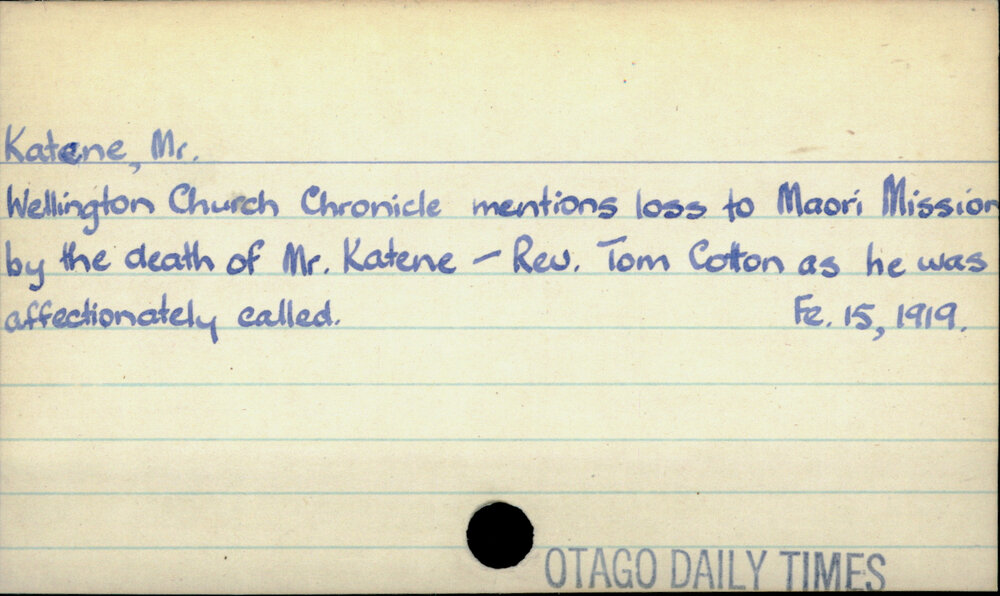 Katene, Mr.
Wellington Church Chronicle mentions loss to Maori Mission
by the death of Mr. Katene – Rev. Tom Cotton as he was
affectionately called. Fe. 15, 1919.
OTAGO DAILY TIMES